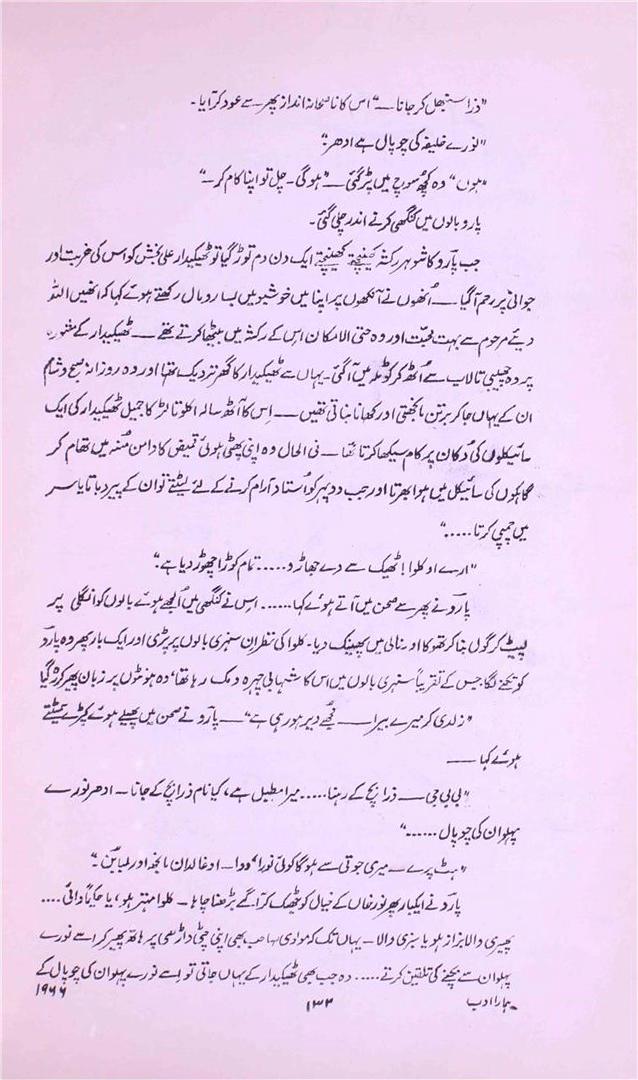 "ذرا سنبھل کر جانا ــــ" اس کا ناصحانہ انداز پھر سے عود کر آیا۔
"نورے خلیفہ کی چوپال ہے ادھر۔"
"ہوں" وہ کچھ سوچ میں پڑ گئی ــــ "ہوگی۔ چل تو اپنا کام کر ــ"
پارو بالوں میں کنگھی کرنے اندر چلی گئی۔
جب پارو کا شوہر رکشہ کھینچتے کھینچتے ایک دن دم توڑ گیا تو ٹھیکیدار علی بخش کو اس کی غربت اور
جوانی پر رحم آگیا ــــ اُنھوں نے آنکھوں پر اپنا میں خوشبو میں بسا رومال رکھتے ہوئے کہا کہ انھیں اللہ
دیئے مرحوم سے بہت محبت اور وہ حتی الامکان اس کے رکشہ میں بیٹھا کرتے تھے ــــ ٹھیکیدار کے مشورہ
پر وہ چھیپی تالاب سے اُٹھ کر کوٹلہ میں آگئی۔ یہاں سے ٹھیکیدار کا گھر نزدیک تھا اور وہ روزانہ صبح و شام
ان کے یہاں جاکر برتن مانجھتی اور کھانا بناتی تھیں ــــ اس کا آٹھ سالہ اکلوتا لڑکا جمیل ٹھیکیدار کی ایک
سائیکلوں کی دُکان پر کام سیکھا کرتا تھا ــ فی الحال وہ اپنی پھٹی ہوئی قمیض کا دامن مُنہ میں تھام کر
گاہکوں کی سائیکل میں ہوا بھرتا اور جب دوپہر کو اُستاد آرام کرنے کے لئے لیٹتے تو ان کے پیر دباتا یا سر
میں چمپی کرتا ....."
"ارے او کلوا! ٹھیک سے دے جھاڑو ..... تمام کوڑا چھوڑ دیا ہے۔"
پارو نے پھر سے صحن میں آتے ہوئے کہا ...... اس نے کنگھی میں اُلجھے ہوئے بالوں کو انگلی پر
لپیٹ کر گول بنا کر تھوکا اور نالی میں پھینک دیا۔ کلوا کی نظر ان سنہری بالوں پر پڑی اور ایک بار پھر وہ پارو
کو تکنے لگا جس کے تقریباً سنہری بالوں میں اس کا شہابی چہرہ دمک رہا تھا، وہ ہونٹوں پر زبان پھیر کر رہ گیا
"زلدی کر میرے بیرا ــــ مجھے دیر ہو رہی ہے" ــــ پارو نے صحن میں پھیلے ہوئے کپڑے سمیٹتے
ہوئے کہا ــــ
"بی بی جی ــــ ذرا بچ کے رہنا ..... میرا مطبل ہے، کیا نام ذرا بچ کے جانا ــ ادھر نورے
پہلوان کی چوپال ......"
"ہٹ پرے ــــ میری جوتی سے ہوگا کوئی نورا ووا ــ او خالدان مانجھ اور لمپائیں۔"
پارو نے ایکبار پھر نور خاں کے خیال کو ٹھیک کر آگے بڑھنا چاہا ــ کلوا مہتر ہو، یا حکیما دائی ....
پھیری والا بزاز ہو یا سبزی والا ــ یہاں تک کہ مولوی صاحب بھی اپنی چٹی داڑھی پر ہاتھ پھیر کر اسے نورے
پہلوان سے بچنے کی تلقین کرتے ..... وہ جب بھی ٹھیکیدار کے یہاں جاتی تو اسے نورے پہلوان کی چوپال کے
ہمارا ادب
۱۳۳
۱۹۶۶